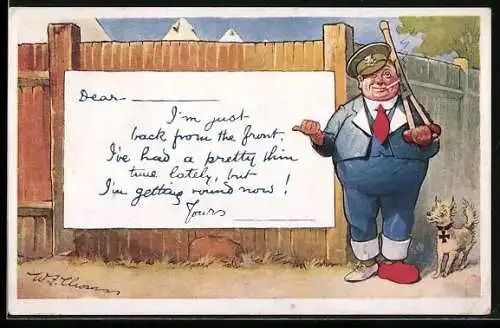 Dear
I'm just
back from the front.
I've had a pretty thin
time lately, but
I'm getting round now!
Yours